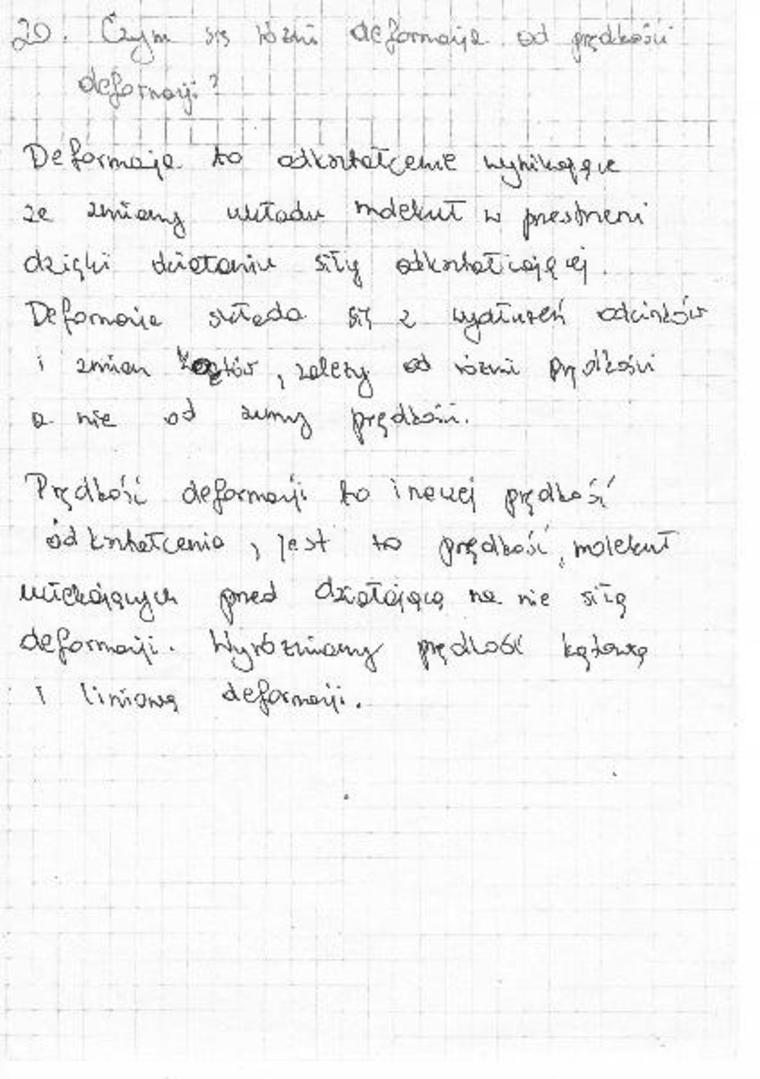 20. Czym się różni deformacja od prędkości
deformacji?
Deformacja to odkształcenie wynikające
ze zmiany układu molekuł w przestrzeni
dzięki działaniu siły odkształcającej.
Deformacja składa się z wydłużeń odcinków
i zmian kątów, zależy od różni prędkości
a nie od sumy prędkości.
Prędkość deformacji to inaczej prędkość
odkształcenia, jest to prędkość molekuł
uciekających przed działającą na nie siłą
deformacji. Wyróżniamy prędkość kątową
i liniową deformacji.